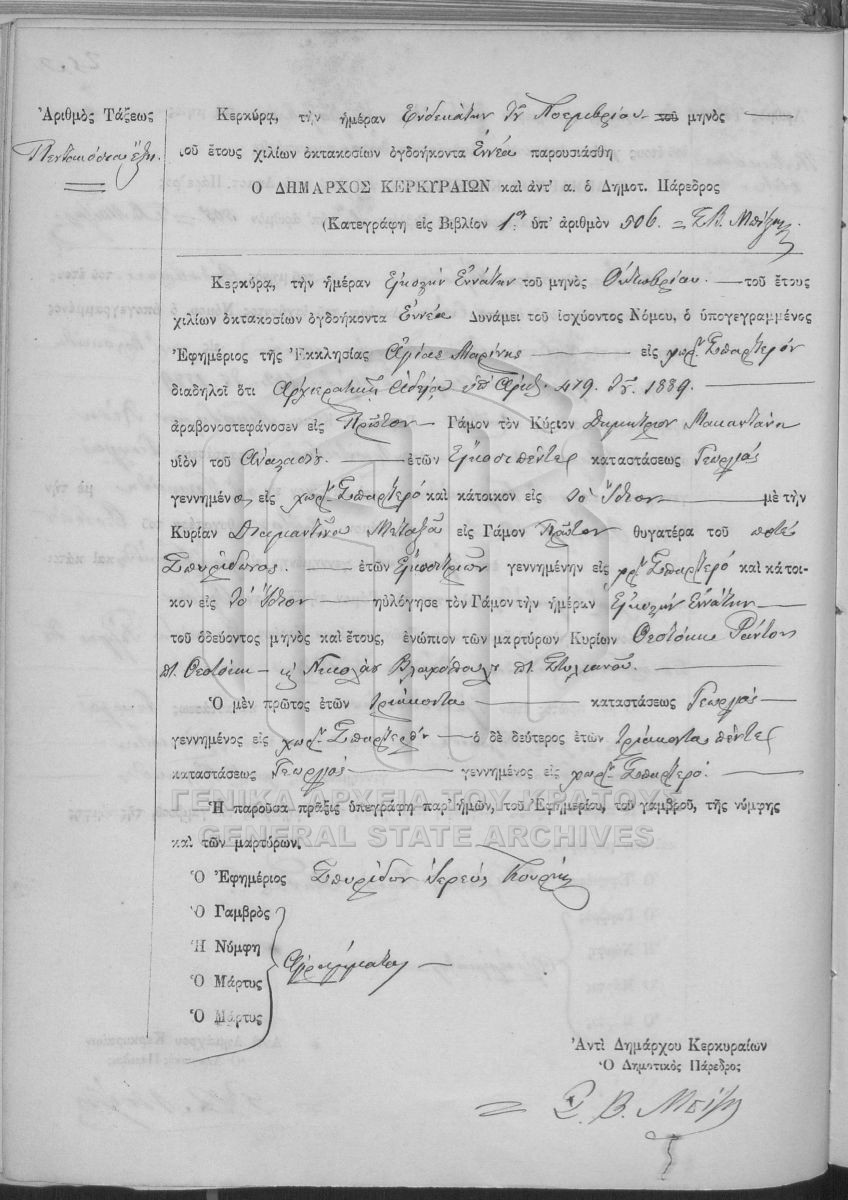 Ἀριθμὸς Τάξεως
Πεντακόσια ἕξη.
Κερκύρα, τὴν ἡμέραν Ἑνδεκάτην τοῦ Νοεμβρίου τοῦ μηνὸς
τοῦ ἔτους χιλίων ὀκτακοσίων ὀγδοήκοντα Ἐννέα παρουσιάσθη
Ὁ ΔΗΜΑΡΧΟΣ ΚΕΡΚΥΡΑΙΩΝ καὶ ἀντ' α. ὁ Δημοτ. Πάρεδρος
(Κατεγράφη εἰς Βιβλίον 1ον ὑπ' ἀριθμὸν 506. = Σ. Β.
Κερκύρα, τὴν ἡμέραν Εἰκοστὴν Ἐννάτην τοῦ μηνὸς Ὀκτωβρίου. τοῦ ἔτους
χιλίων ὀκτακοσίων ὀγδοήκοντα Ἐννέα Δυνάμει τοῦ ἰσχύοντος Νόμου, ὁ ὑπογεγραμμένος
Ἐφημέριος τῆς Ἐκκλησίας Ἁγίας Μαρίνης εἰς χωρ. Σπαρτερὸν
διαδηλοῖ ὅτι Ἀρχιερατικῇ Ἀδείᾳ ὑπ' Ἀριθ. 479. τοῦ 1889.
ἀραβονοστεφάνοσεν εἰς Πρῶτον Γάμον τὸν Κύριον Δημήτριον Μακαντάνη
υἱὸν τοῦ Ἀναστασίου. ἐτῶν Εἴκοσι πέντε καταστάσεως Γεωργὸς
γεννημένος εἰς χωρ. Σπαρτερό καὶ κάτοικον εἰς τὸ Ἴδιον μὲ τὴν
Κυρίαν Διαμαντίνα Μεταξᾶ εἰς Γάμον Πρῶτον θυγατέρα τοῦ ποτέ
Σπυρίδωνος. ἐτῶν Εἰκοσιτριῶν γεννημένην εἰς χωρ. Σπαρτερό καὶ κάτοι-
κον εἰς τὸ Ἴδιον ηὐλόγησε τὸν Γάμον τὴν ἡμέραν Εἰκοστὴν Ἐννάτην
τοῦ ὁδεύοντος μηνὸς καὶ ἔτους, ἐνώπιον τῶν μαρτύρων Κυρίων Θεοτόκη
Θεοτόκη κ Νικολάου Βλαχόπουλου Στυλιανοῦ.
Ὁ μὲν πρῶτος ἐτῶν τριάκοντα καταστάσεως Γεωργὸς
γεννημένος εἰς χωρ. ὁ δὲ δεύτερος ἐτῶν τριάκοντα πέντε
καταστάσεως Γεωργός γεννημένος εἰς χωρ. Σπαρτερό.
Ἡ παροῦσα πρᾶξις ὑπεγράφη παρ' ἡμῶν, τοῦ Ἐφημερίου, τοῦ γαμβροῦ, τῆς νύμφης
καὶ τῶν μαρτύρων.
ΓΕΝΙΚΑ ΑΡΧΕΙΑ ΤΟΥ ΚΡΑΤΟΥΣ
GENERAL STATE ARCHIVES
Ὁ Ἐφημέριος Σπυρίδων Ἱερεὺς
Ὁ Γαμβρὸς
Ἡ Νύμφη
Ὁ Μάρτυς
Ὁ Μάρτυς
Ἀγράμματοι
Ἀντὶ Δημάρχου Κερκυραίων
Ὁ Δημοτικὸς Πάρεδρος
Σ. Β.